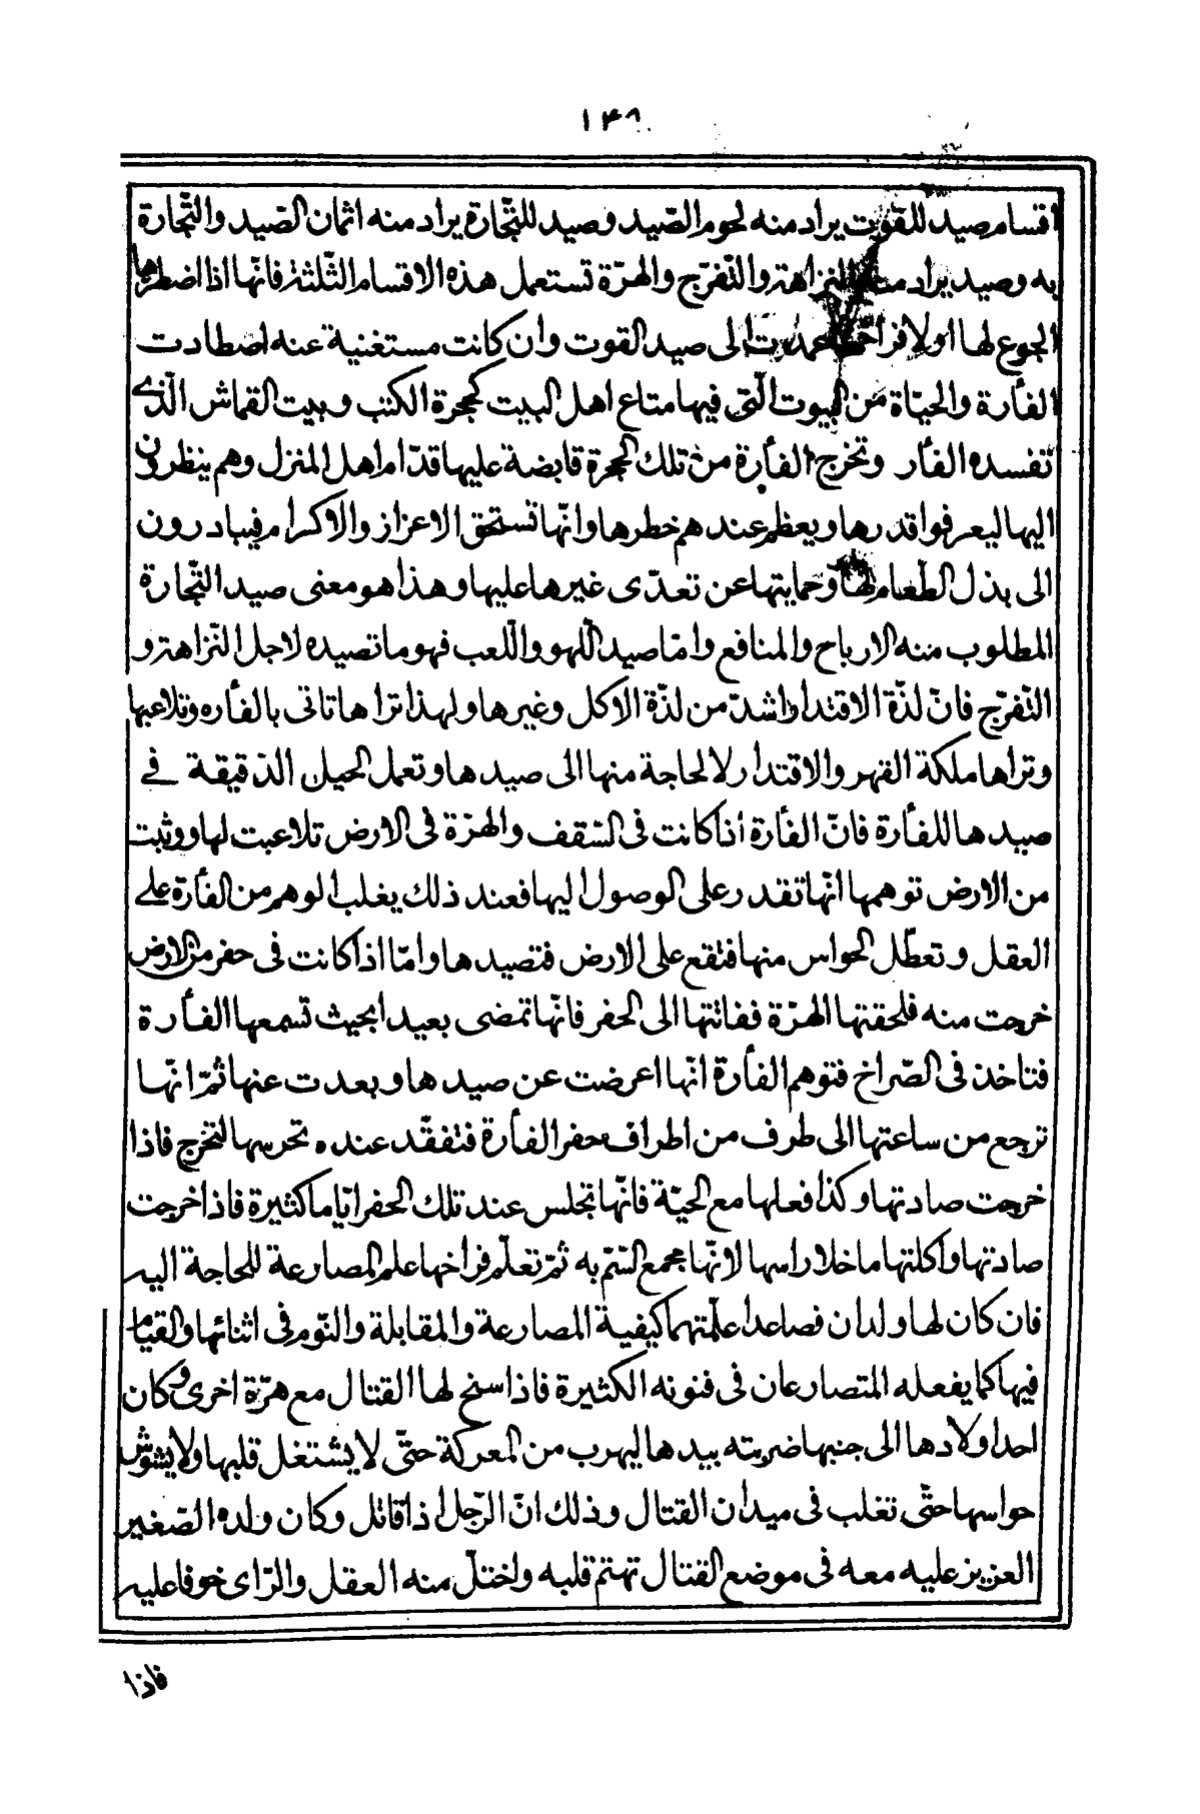 ۱۴۹
اقسام صيد للقوت يراد منه لحوم الصّيد وصيد للتّجارة يراد منه اثمان الصّيد والتّجارة
به وصيد يراد منه النزاهة والتّفرّج والهرّة تستعمل هذه الاقسام الثّلثة فانّها اذا اضطرها
الجوع لها اولافراخها عمدت الى صيد القوت وان كانت مستغنية عنه اصطادت
الفأرة والحيّاة من البيوت الّتى فيها متاع اهل البيت كحجرة الكتب وبيت القماش الّذى
تفسده الفأر وتخرج الفأرة من تلك الحجرة قابضة عليها قدّام اهل المنزل وهم ينظرون
اليها ليعرفوا قدرها ويعظم عندهم خطرها وانّها تستحق الاعزاز والاكرام فيبادرون
الى بذل الطّعام لها وحمايتها عن تعدّى غيرها عليها وهذا هو معنى صيد التّجارة
المطلوب منه الارباح والمنافع وامّا صيد اللّهو واللّعب فهو ما تصيده لاجل النّزاهة و
التّفرّج فانّ لذّة الاقتدار اشدّ من لذّة الاكل وغيرها ولهذا تراها تاتى بالفأره وتلاعبها
وتراها ملكة القهر والاقتدار لا لحاجة منها الى صيدها وتعمل الحيل الدّقيقة فى
صيدها للفأرة فانّ الفأرة اذا كانت فى السّقف والهرّة فى الارض تلاعبت لها ووثبت
من الارض توهمها انّها تقدر على الوصول اليها فعند ذلك يغلب الوهم من الفأرة على
العقل وتعطّل الحواس منها فتقع على الارض فتصيدها وامّا اذا كانت فى حفر من الارض
خرجت منه فلحقتها الهرّة ففاتتها الى الحفر فانّها تمضى بعيدا بحيث تسمعها الفأرة
فتاخذ فى الصّراخ فتوهم الفأرة انّها اعرضت عن صيدها وبعدت عنها ثمّ انّها
ترجع من ساعتها الى طرف من اطراف حفر الفأرة فتفقّد عنده تحرسها لتخرج فاذا
خرجت صادتها وكذا فعلها مع الحيّة فانّها تجلس عند تلك الحفر ايّاما كثيرة فاذا خرجت
صادتها واكلتها ما خلا راسها لانّها مجمع السّمّ به ثمّ تعلّم فراخها علم المصارعة للحاجة اليه
فان كان لها ولدان فصاعدا علّمتهما كيفية المصارعة والمقابلة والنّوم فى اثنائها والقيام
فيها كما يفعله المتصارعان فى فنونه الكثيرة فاذا سنح لها القتال مع هرّة اخرى وكان
احد اولادها الى جنبها ضربته بيدها ليهرب من المعركة حتّى لا يشتغل قلبها ولا يشوش
حواسها حتّى تغلب فى ميدان القتال وذلك انّ الرّجل اذا قاتل وكان ولده الصّغير
العزيز عليه معه فى موضع القتال تهتم قلبه واختلّ منه العقل والرّاى خوفا عليه
فاذا